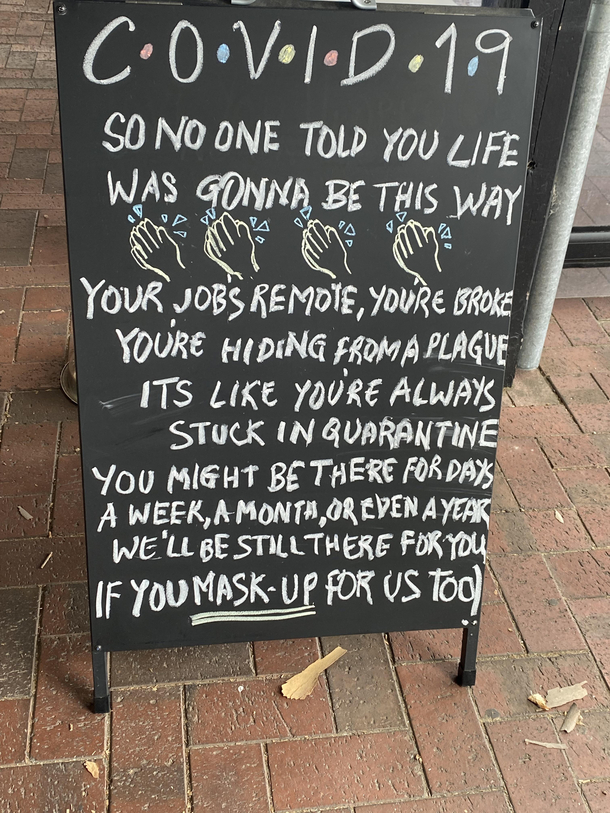 C·O·V·I·D·19
SO NO ONE TOLD YOU LIFE
WAS GONNA BE THIS WAY
YOUR JOB'S REMOTE, YOU'RE BROKE
YOU'RE HIDING FROM A PLAGUE
ITS LIKE YOU'RE ALWAYS
STUCK IN QUARANTINE
YOU MIGHT BE THERE FOR DAYS
A WEEK, A MONTH, OR EVEN A YEAR
WE'LL BE STILL THERE FOR YOU
IF YOU MASK-UP FOR US TOO)